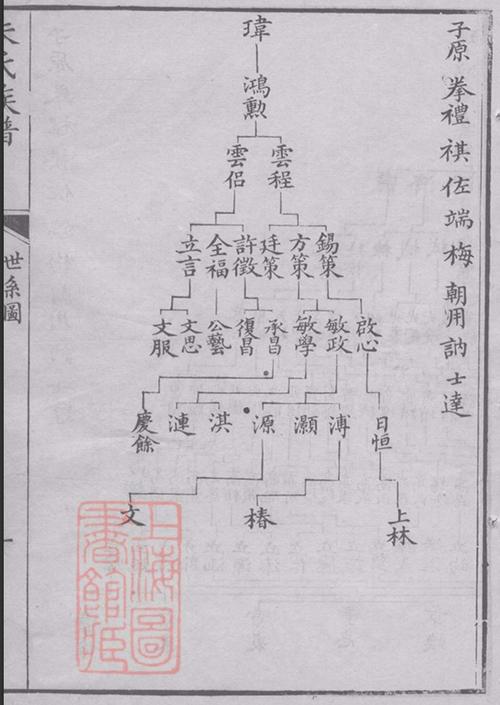 子原 拳禮 祺 佐 端 梅 朝用 訥 士達
瑋
鴻勲
雲程 雲侶
錫策 方策 廷策 許徵 全福 立言
啟心 敏政 敏學 承昌 復昌 公藝 文思 文服
日恒 溥 灝 源 淇 漣 慶餘
上林 椿 文
氏族譜
世系圖
一
上海圖
書館藏